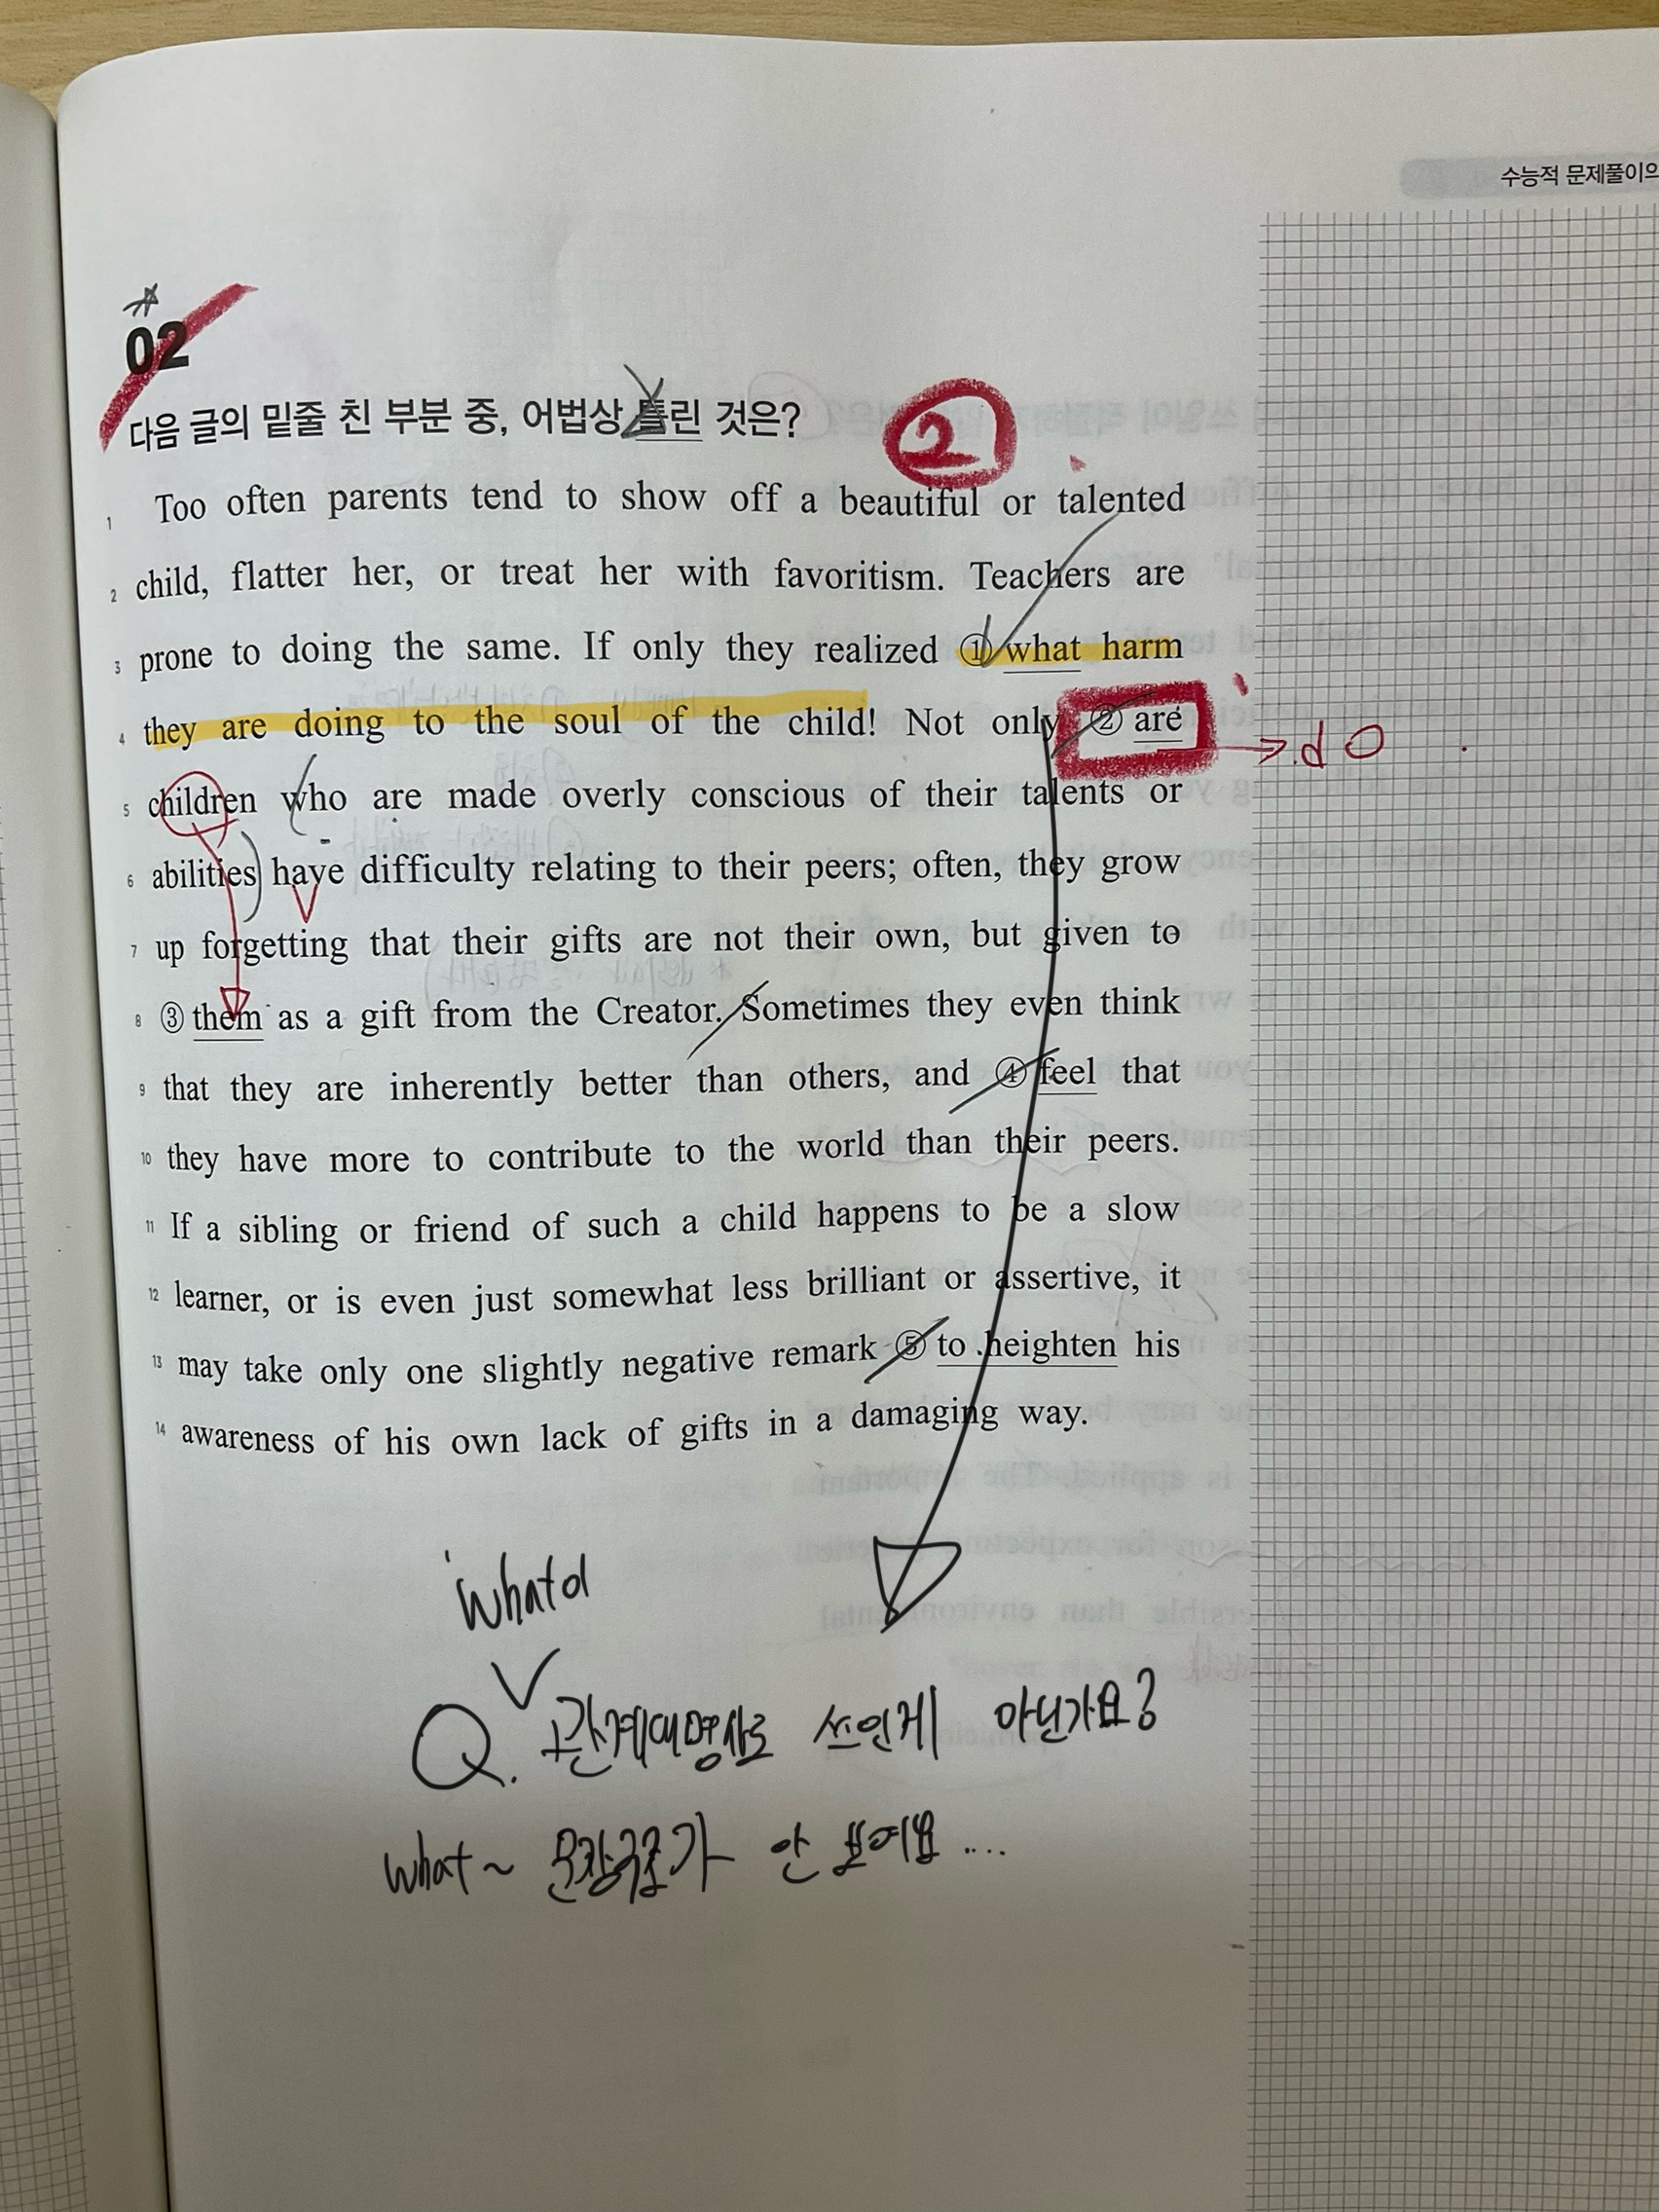 수능적 문제풀이의
02
다음 글의 밑줄 친 부분 중, 어법상 틀린 것은?
2
1 Too often parents tend to show off a beautiful or talented
2 child, flatter her, or treat her with favoritism. Teachers are
3 prone to doing the same. If only they realized ① what harm
4 they are doing to the soul of the child! Not only ② are
→ do
5 children who are made overly conscious of their talents or
6 abilities have difficulty relating to their peers; often, they grow
7 up forgetting that their gifts are not their own, but given to
8 ③ them as a gift from the Creator. Sometimes they even think
9 that they are inherently better than others, and ④ feel that
10 they have more to contribute to the world than their peers.
11 If a sibling or friend of such a child happens to be a slow
12 learner, or is even just somewhat less brilliant or assertive, it
13 may take only one slightly negative remark ⑤ to heighten his
14 awareness of his own lack of gifts in a damaging way.
Q. 관계대명사로 쓰인게 아닌가요?
what~ 문장구조가 안 보여요...